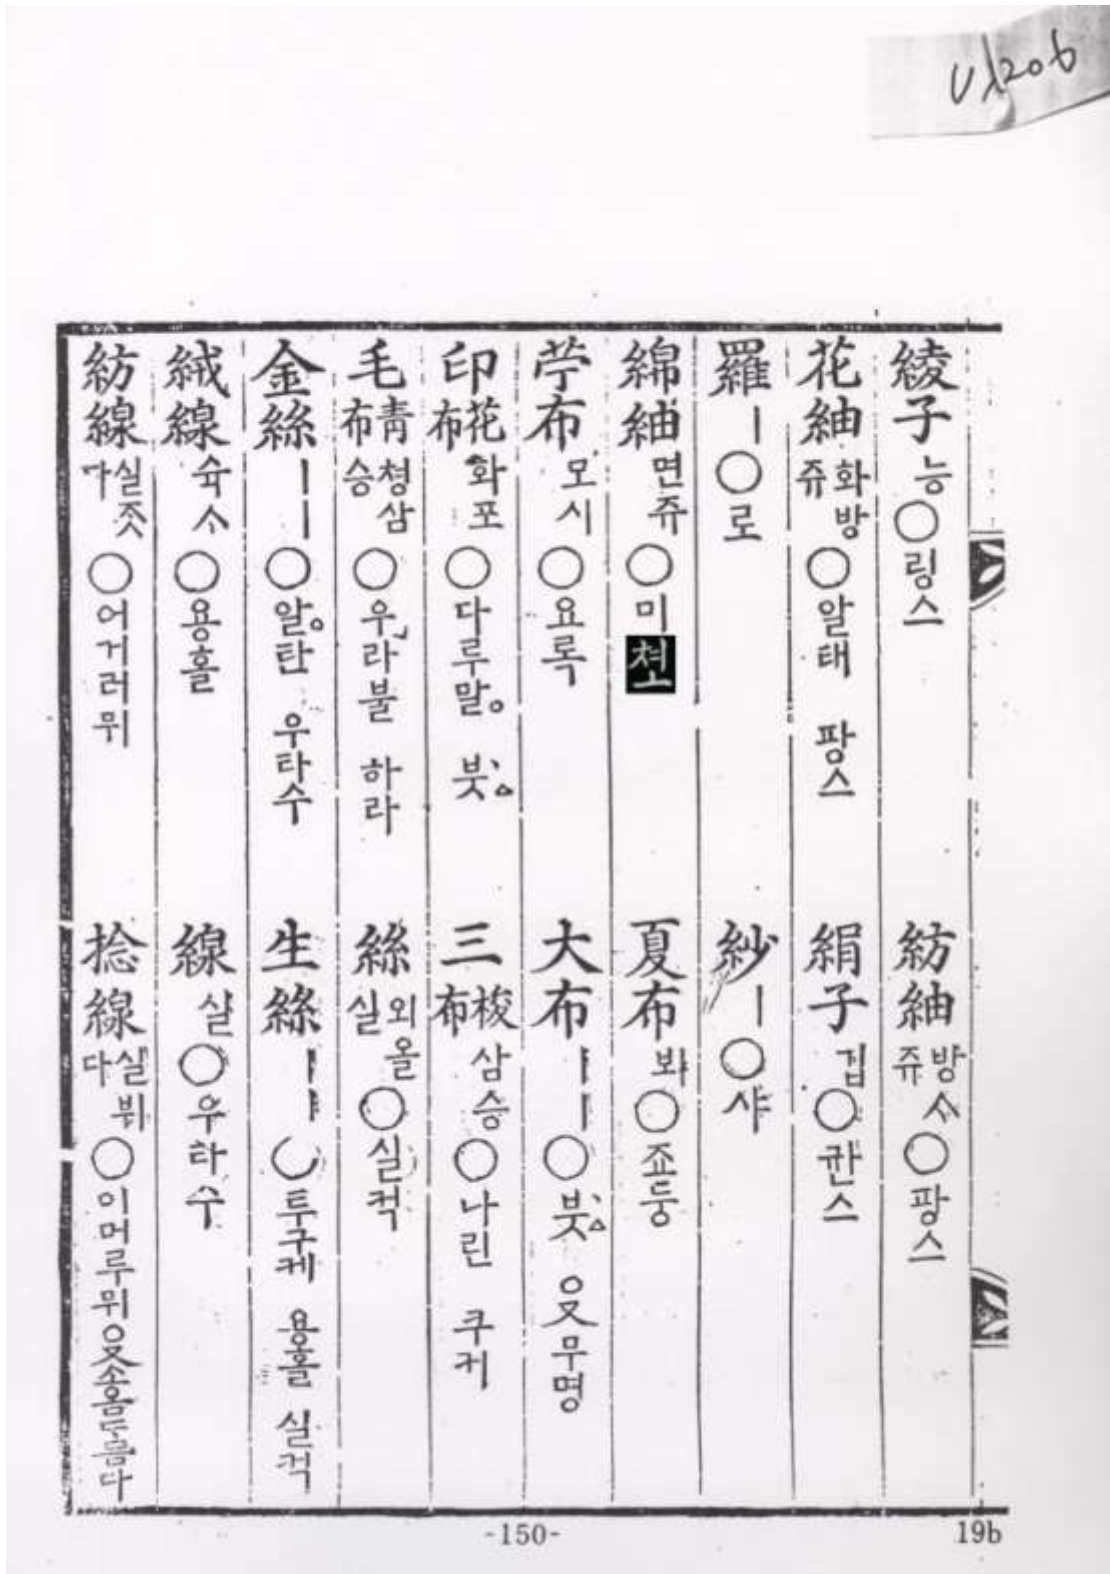 綾子 능 ○ 링스
紡紬 방ᄉᆞ쥬 ○ 팡스
花紬 화방쥬 ○ 알태 팡스
絹子 겹 ○ 콴스
羅 ー ○ 로
紗 ー ○ 샤
綿紬 면쥬 ○ 미
夏布 봐 ○ 죠둥
苧布 모시 ○ 요록
大布 ーー ○ 붓 ᄋᆞᆺ무명
印花布 화포 ○ 다루말 붓
三梭布 삼승 ○ 나린 쿠커
毛靑布 청삼승 ○ 우라불 하라
絲 외올실 ○ 실컥
金絲 ーー ○ 알탄 우타수
生絲 ーー ○ 투구케 용홀 실컥
絨線 슈ᄉᆞ ○ 용홀
線 샬 ○ 우타수
紡線 실ᄌᆞᆺ다 ○ 어거러뮈
捻線 실뷔다 ○ 이머루뮈
-150-
19b